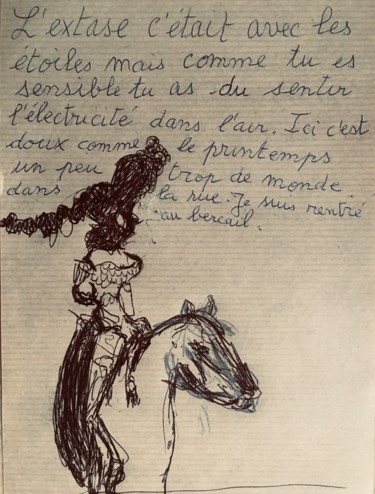 L'extase c'était avec les
étoiles mais comme tu es
sensible tu as du sentir
l'électricité dans l'air. Ici c'est
doux comme le printemps
un peu trop de monde
dans la rue. Je suis rentré
au bercail.